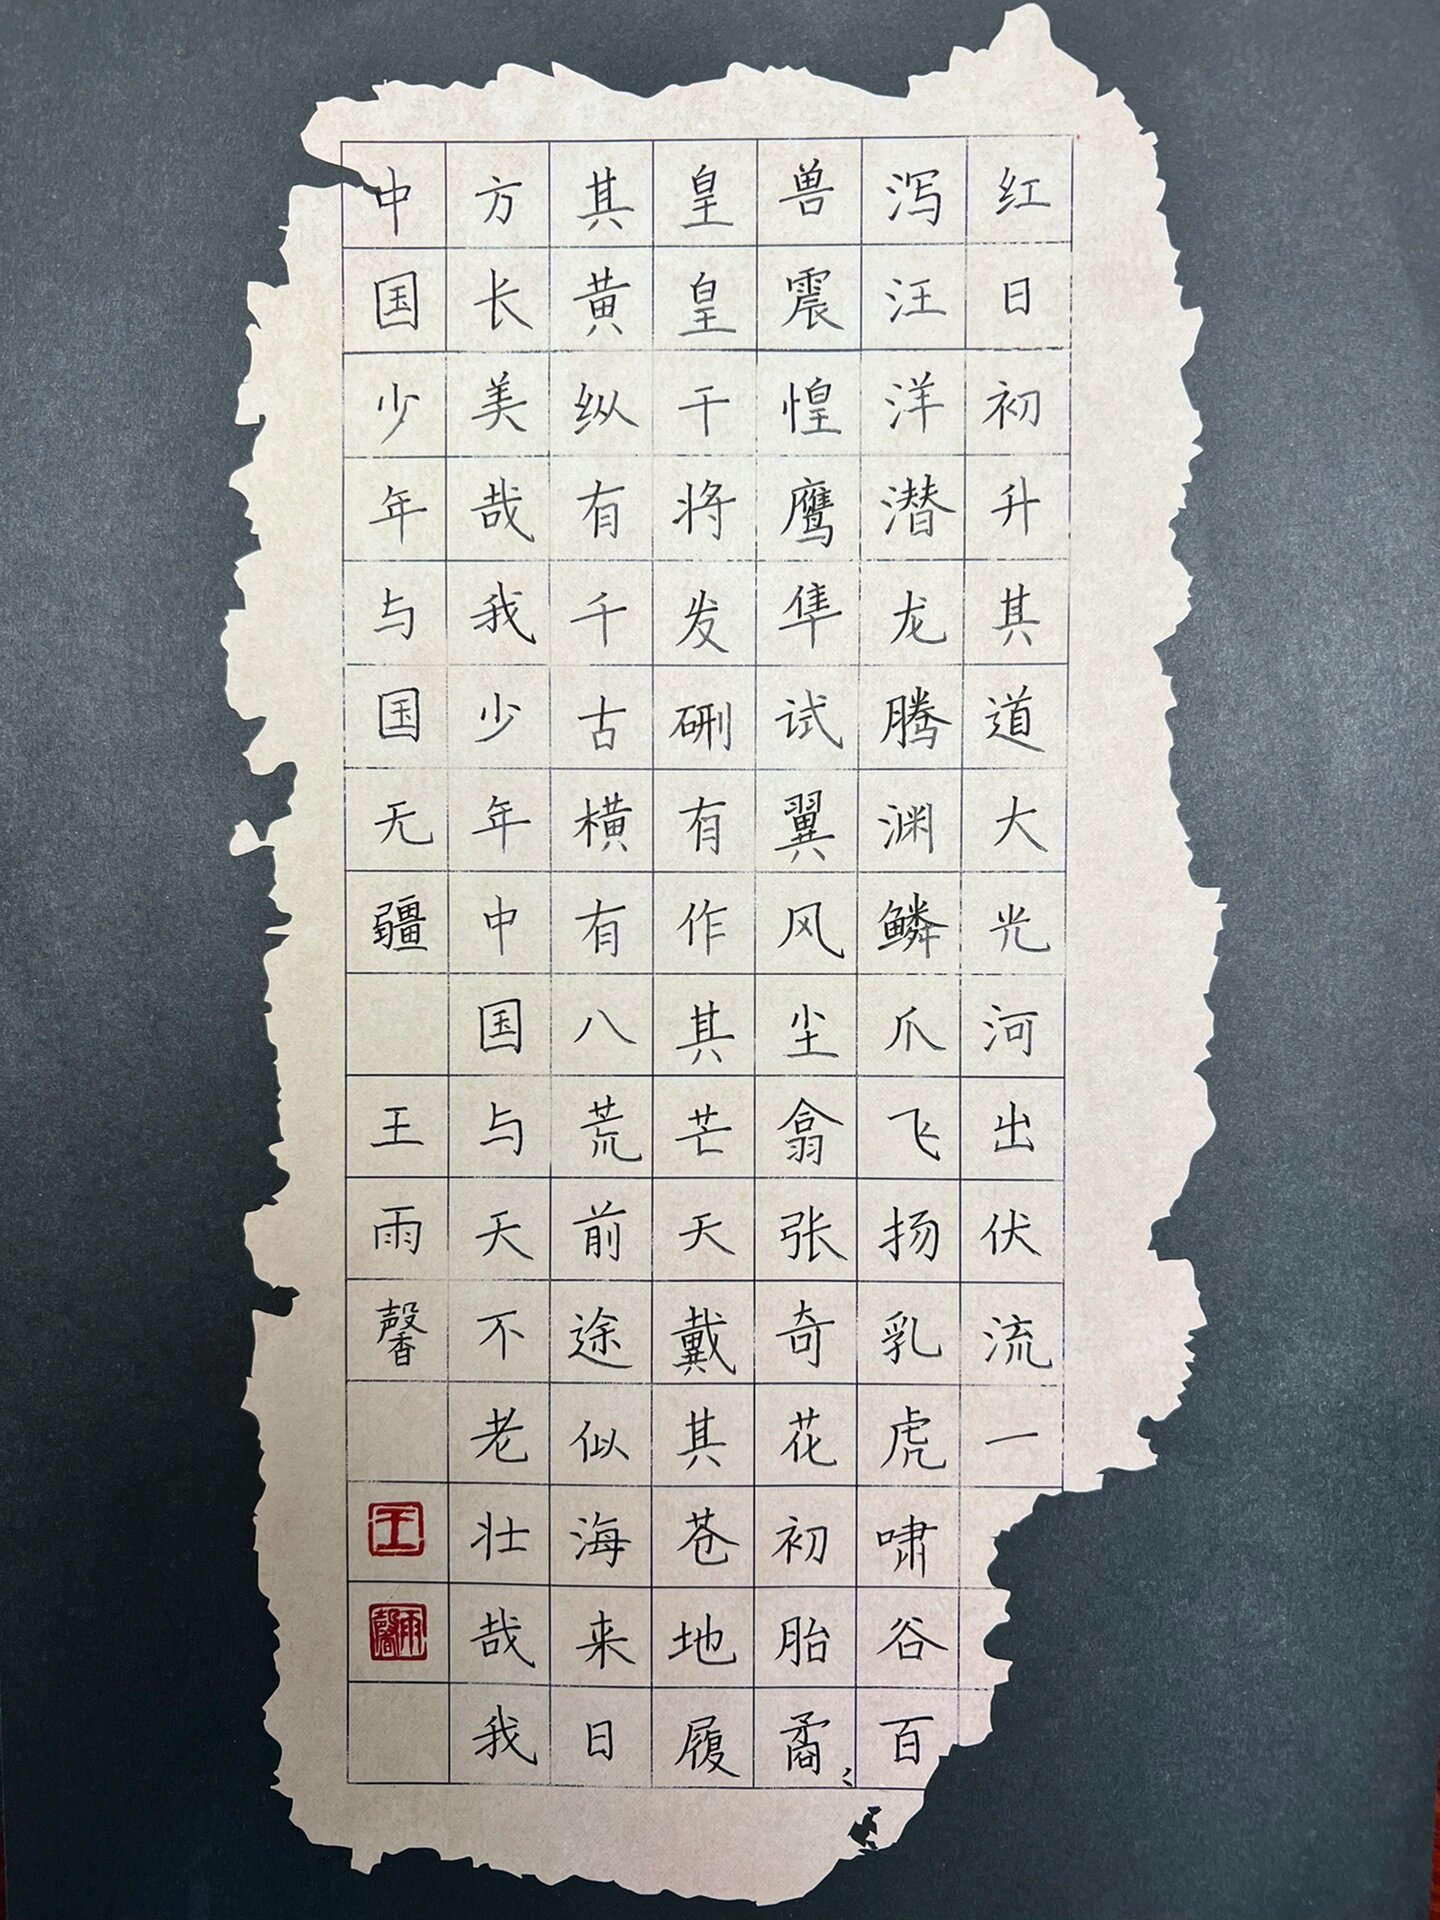 红日初升其道大光河出伏流一
泻汪洋潜龙腾渊鳞爪飞扬乳虎啸谷百
兽震惶鹰隼试翼风尘翕张奇花初胎矞〻
皇皇干将发硎有作其芒天戴其苍地履
其黄纵有千古横有八荒前途似海来日
方长美哉我少年中国与天不老壮哉我
中国少年与国无疆 王雨馨
王
雨馨